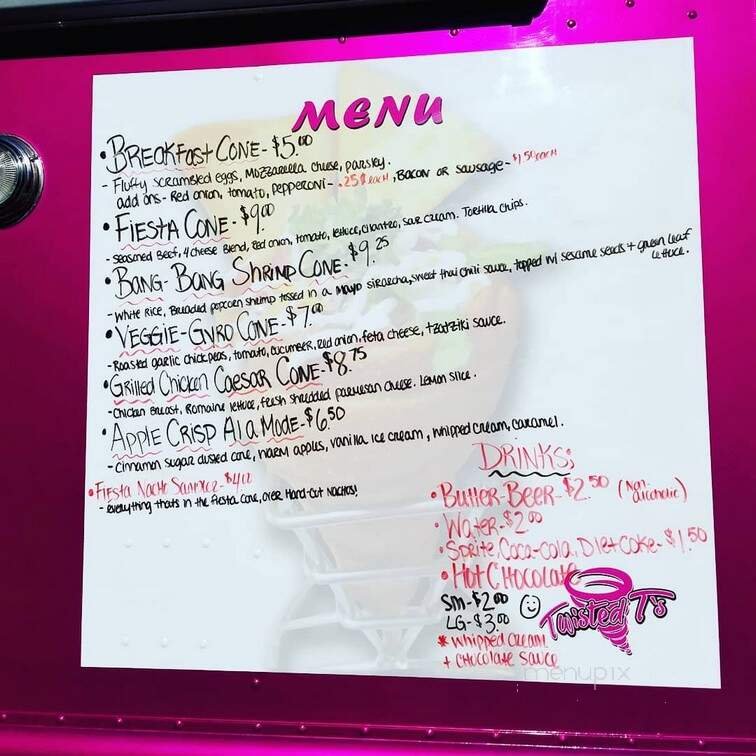 MENU
• BREAKFast CONE - $5.00
- Fluffy scrambled eggs, Mozzarella cheese, parsley.
add ons - Red onion, tomato, pepperoni - .25¢ each, Bacon or sausage - $1.50 each
• FIESTA CONE - $9.00
- seasoned Beef, 4 cheese Blend, red onion, tomato, lettuce, cilantro, sour cream. Tortilla chips.
• BANG-BANG SHRIMP CONE - $9.25
- White Rice, Breaded popcorn shrimp tossed in a Mayo siracha, sweet thai chili sauce, topped w/ sesame seeds + green leaf
lettuce.
• VEGGIE-GYRO CONE - $7.00
- Roasted garlic chickpeas, tomato, cucumber, red onion, feta cheese, tzatziki sauce.
• Grilled Chicken Caesar CONE - $8.75
- Chicken Breast, Romaine lettuce, fresh shredded parmesan cheese. Lemon Slice.
• APPLE CRISP A la MODE - $6.50
- Cinnamon sugar dusted cone, warm apples, vanilla ice cream, whipped cream, caramel.
• FIESTA NACHO - $4.00
- everything thats in the fiesta cone, over Hand-Cut Nachos!
DRINKS:
• Butter-Beer - $2.50 (Non-
alcoholic)
• Water - $2.00
• Sprite, Coca-cola, Diet Coke - $1.50
• Hot CHocolate
Sm - $2.00
LG - $3.00
* Whipped Cream
+ CHocolate Sauce
Twisted T's
menupix